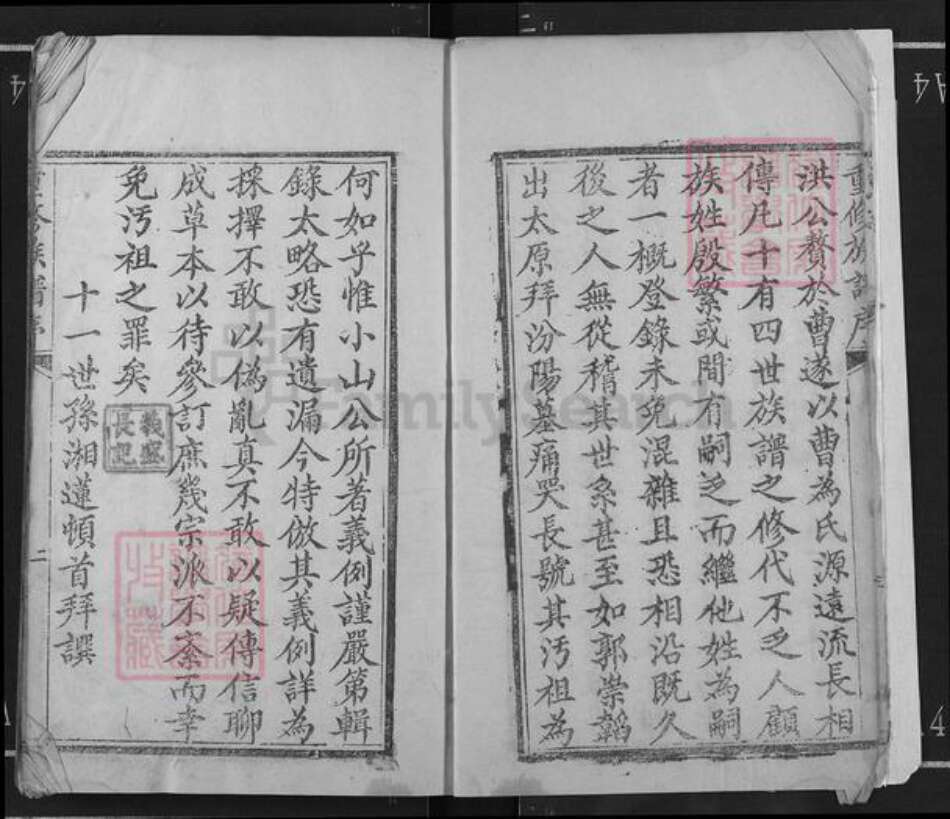 重修族譜序
洪公贅於曹遂以曹為氏源遠流長相
傳凡十有四世族譜之修代不乏人顧
族姓殷繁或間有嗣乏而繼他姓為嗣
者一概登錄未免混雜且恐相沿既久
後之人無從稽其世系甚至如郭崇韜
出太原拜汾陽墓痛哭長號其汚祖為
何如乎惟小山公所著義例謹嚴第輯
錄太略恐有遺漏今特倣其義例詳為
採擇不敢以偽亂真不敢以疑傳信聊
成草本以待參訂庶幾宗派不紊而幸
免汚祖之罪矣
十一世孫湘蓮頓首拜譔
義盛
長記
重修族譜序
二
FamilySearch